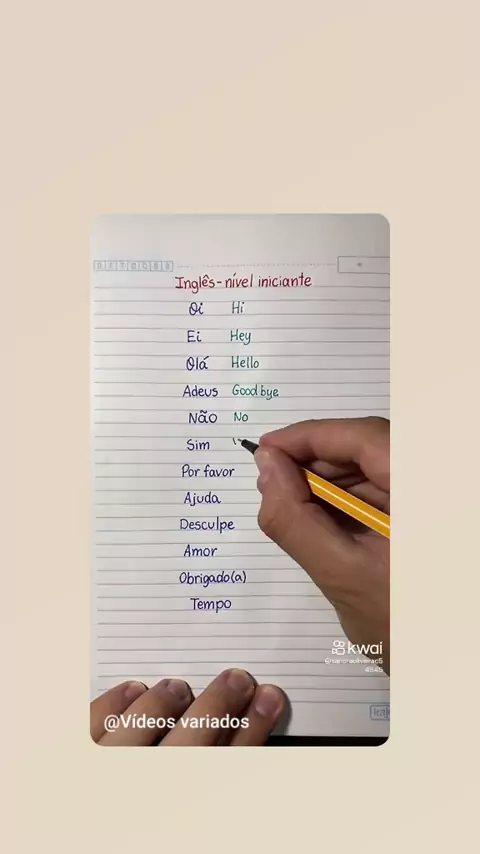 Inglês - nível iniciante
Oi Hi
Ei Hey
Olá Hello
Adeus Good bye
Não No
Sim
Por favor
Ajuda
Desculpe
Amor
Obrigado(a)
Tempo
kwai
@Vídeos variados